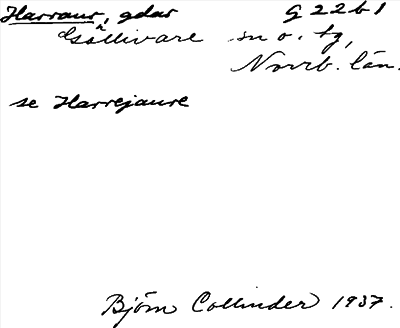 Harraur, gdar G 22 b 1
Gällivare sn o. tg,
Norrb. län.
se Harrejaure
Björn Collinder 1937.